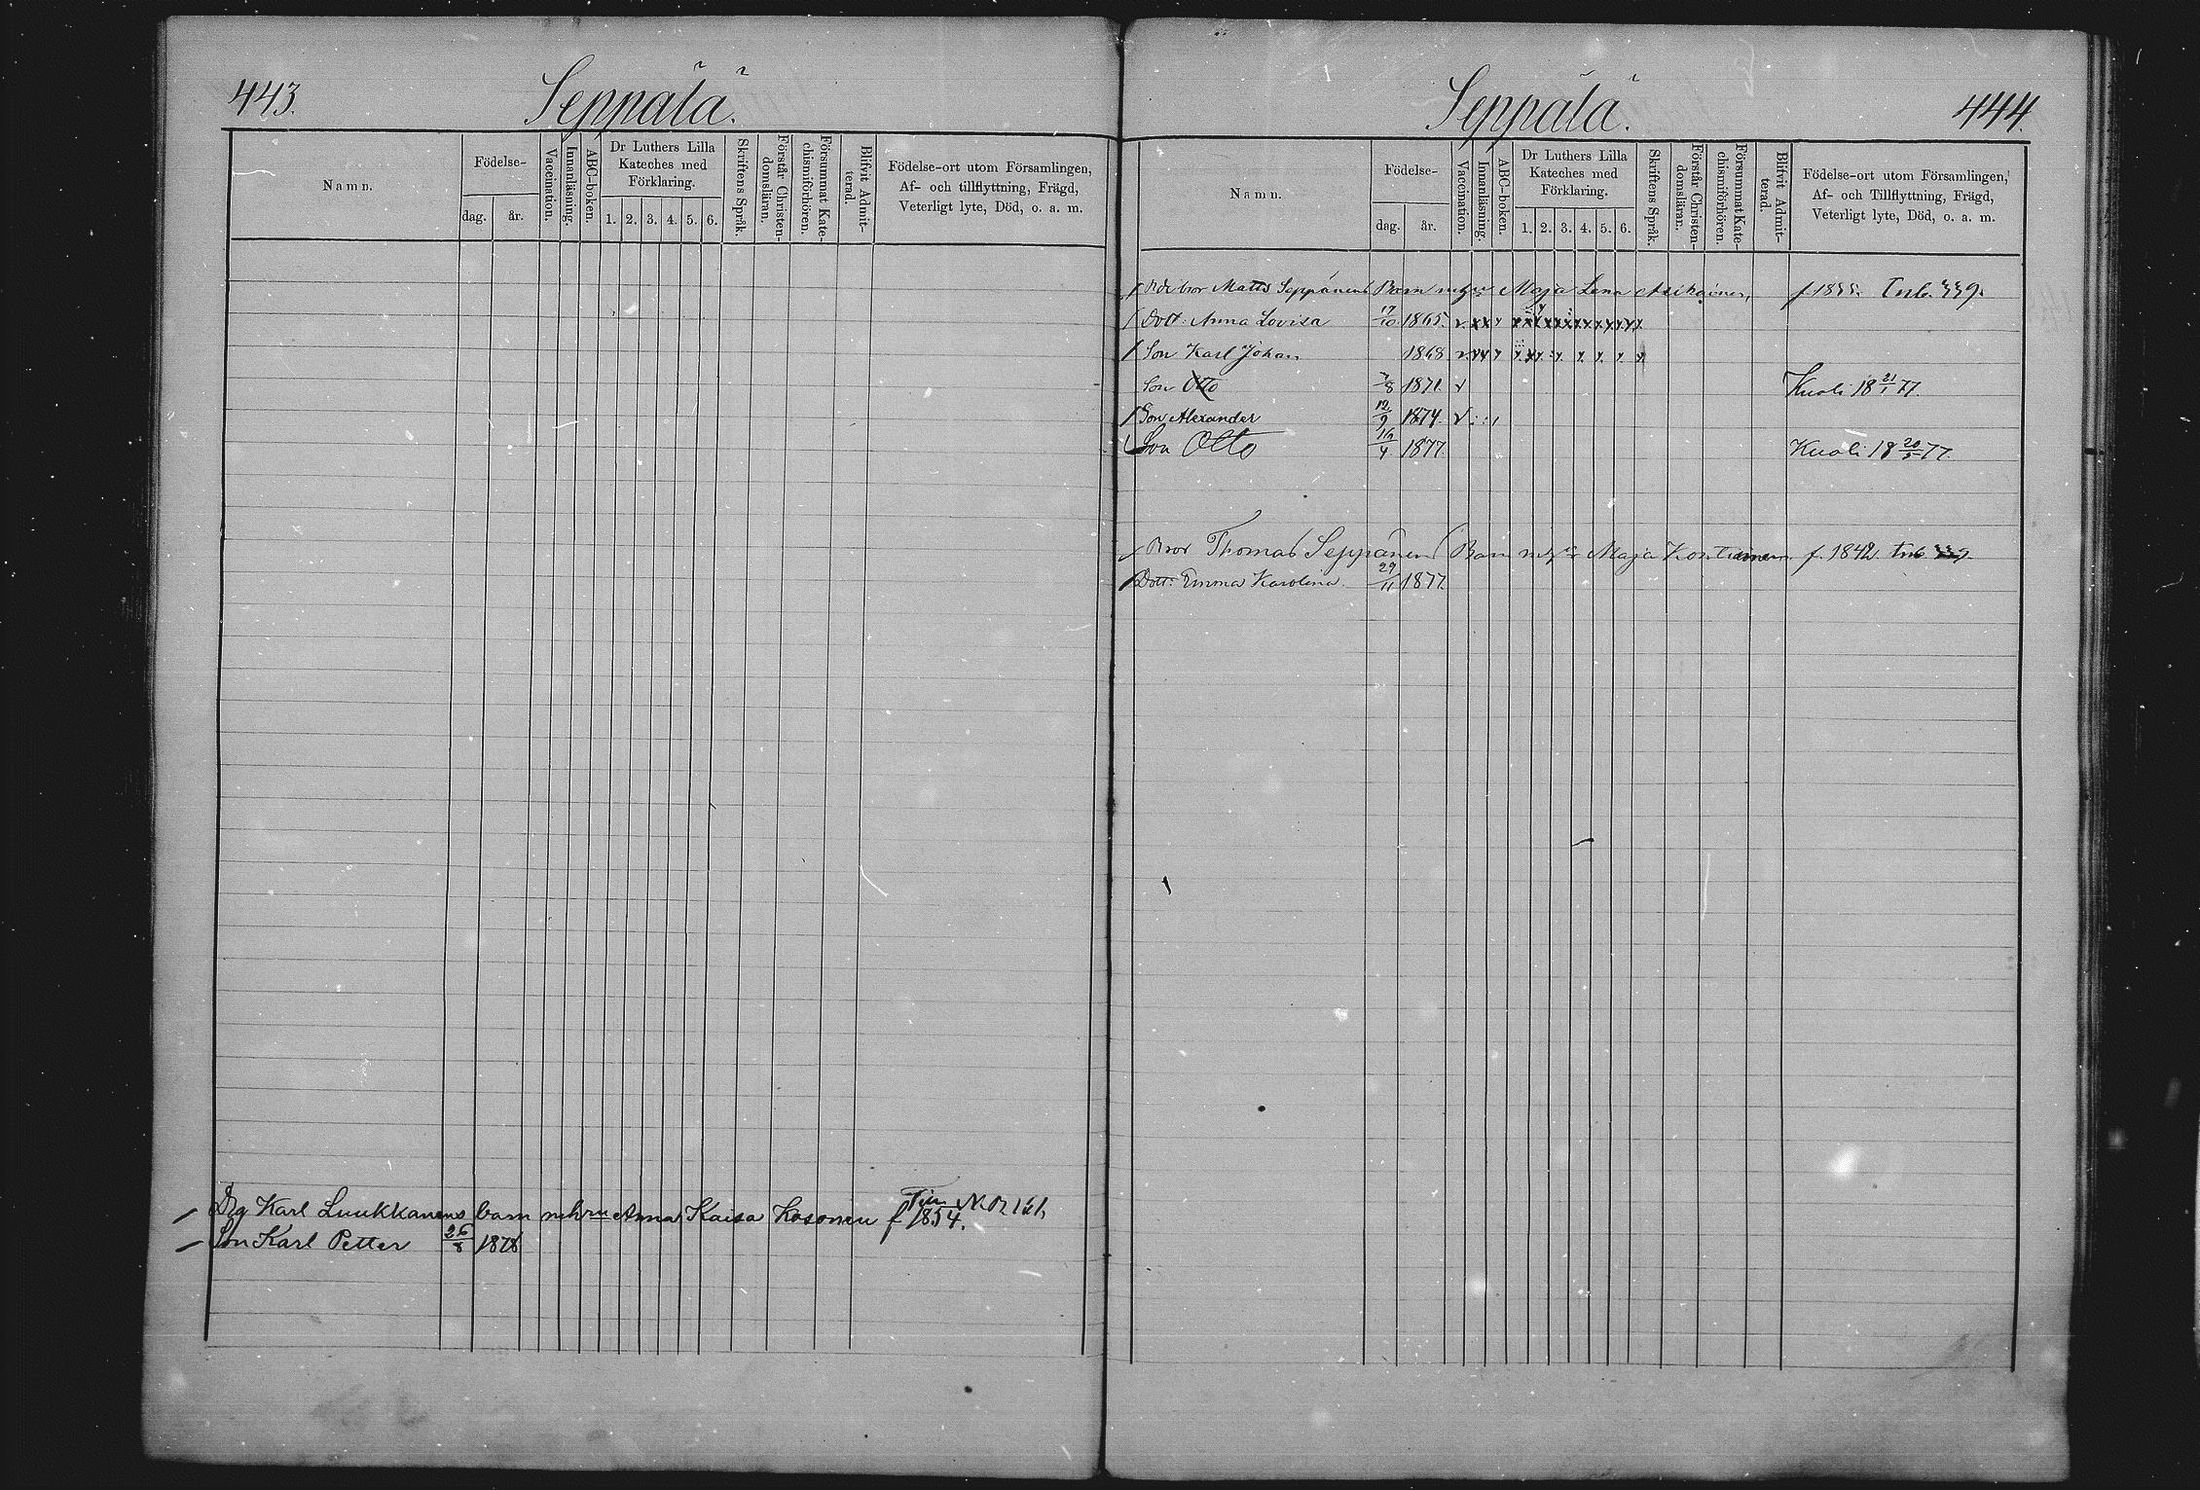 443.
Seppälä.
Namn.
Födelse-
dag.
år.
Vaccination.
Innanläsning.
ABC-boken.
Dr Luthers Lilla
Kateches med
Förklaring.
1. 2. 3. 4. 5. 6.
Skriftens Språk.
Förstår Christen-
domsläran.
Försummat Kate-
chismiförhören.
Blifvit Admit-
terad.
Födelse-ort utom Församlingen,
Af- och tillflyttning, Frägd,
Veterligt lyte, Död, o. a. m.
Drg Karl Luukkanens barn m hru Anna Kaisa Kosonen f 1854.
Son Karl Petter 26/8 1878
Seppälä.
444.
Namn.
Födelse-
dag.
år.
Vaccination.
Innanläsning.
ABC-boken.
Dr Luthers Lilla
Kateches med
Förklaring.
1. 2. 3. 4. 5. 6.
Skriftens Språk.
Förstår Christen-
domsläran.
Försummat Kate-
chismiförhören.
Blifvit Admit-
terad.
Födelse-ort utom Församlingen,
Af- och Tillflyttning, Frägd,
Veterligt lyte, Död, o. a. m.
bror Matts Seppänens Barn Maja Lena Asikainen,
Dott: Anna Lovisa 17/10 1865
Son Karl Johan 1868
Son Otto 7/8 1871 Kuoli 18 21/1 77.
Son Alexander 12/9 1874
Son Otto 19/4 1877 Kuoli 18 20/5 77.
Bror Thomas Seppänen Barn Maja Kontianen f. 1842
Dott: Emma Karolina. 29/11 1877.